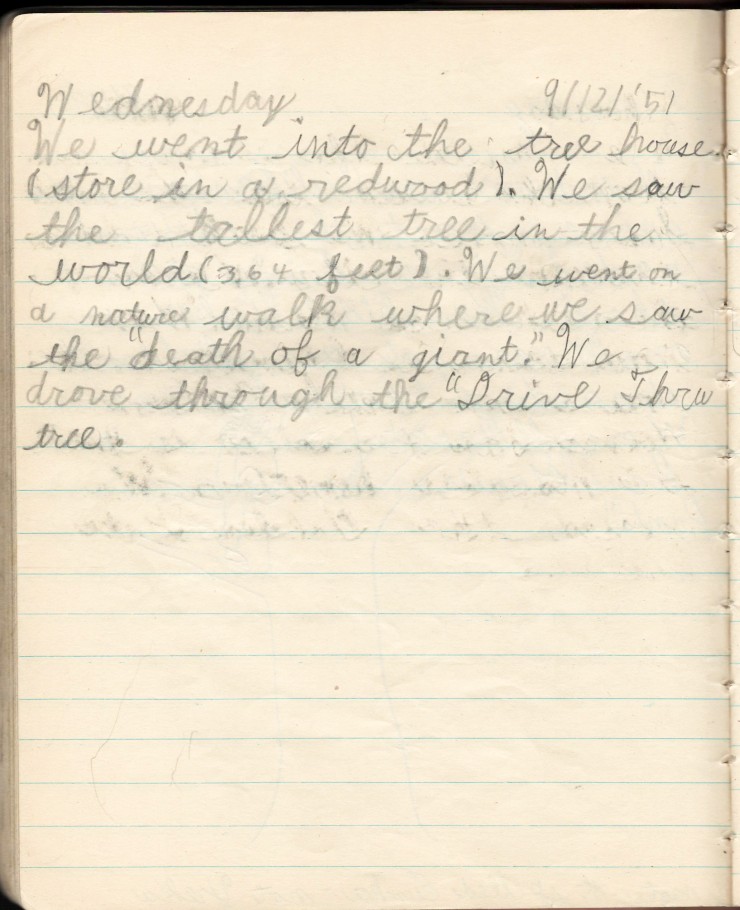 Wednesday 9/12/'51
We went into the tree house
(store in a redwood). We saw
the tallest tree in the
world (364 feet). We went on
a nature walk where we saw
the "death of a giant." We
drove through the "Drive Thru
tree.